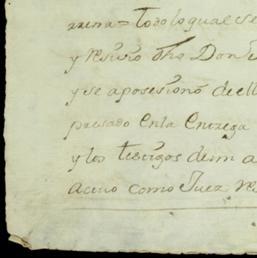 arena = todo lo qual se
y Resivio dho Don
y se aposesionó de ell
presado En la Entrega
y los testigos de mi a
actuo como Juez Re